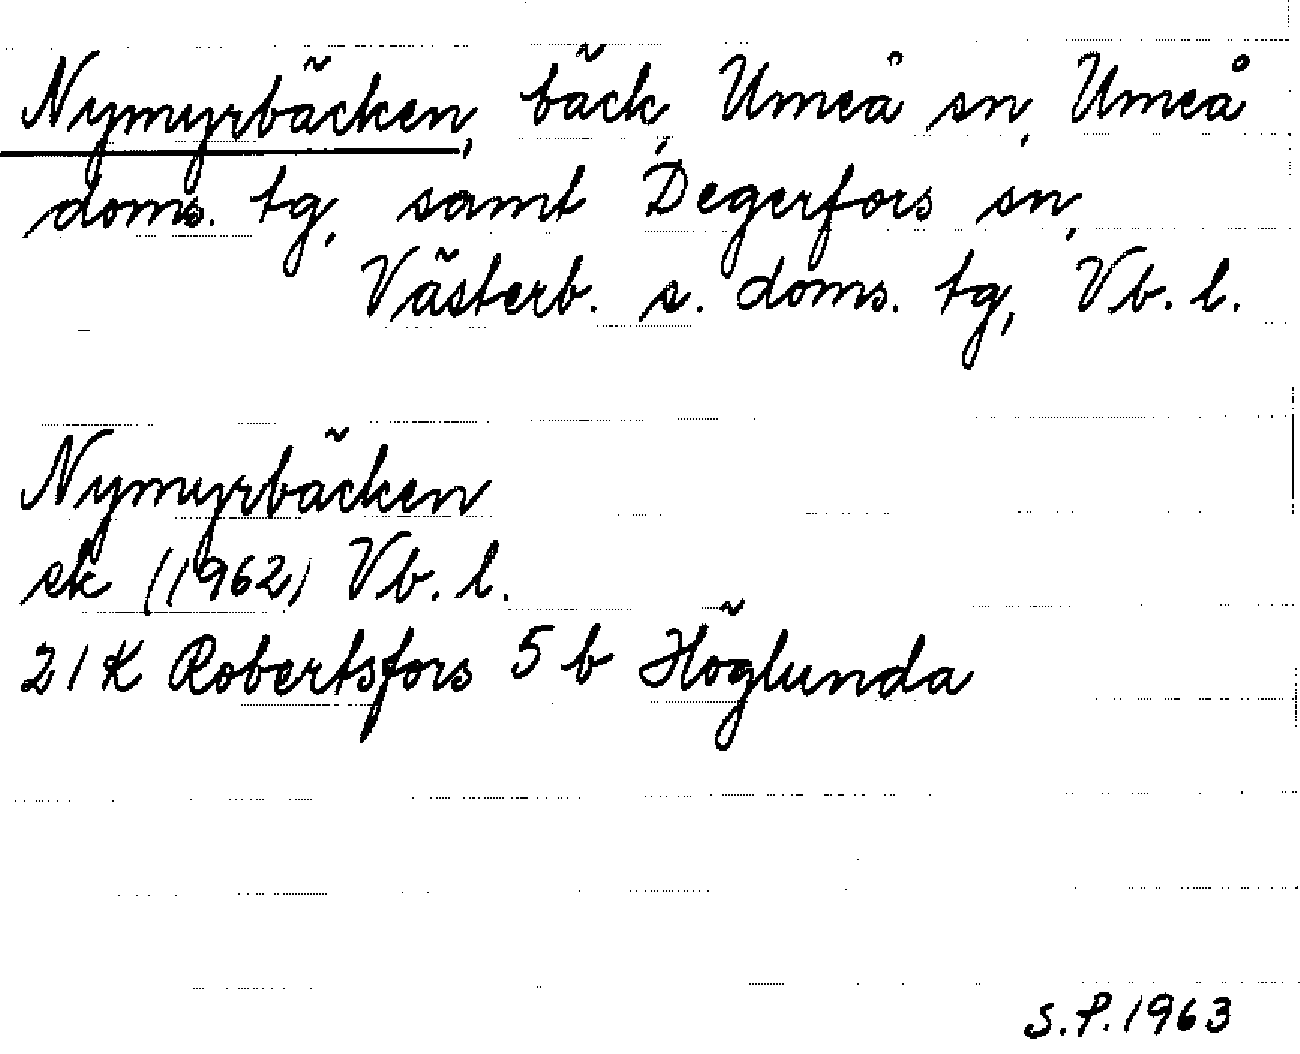 Nymyrbäcken, bäck, Umeå sn, Umeå
doms. tg, samt Degerfors sn,
Västerb. s. doms. tg, Vb. l.
Nymyrbäcken
ek (1962) Vb. l.
21K Robertsfors 5 b Höglunda
S.P. 1963